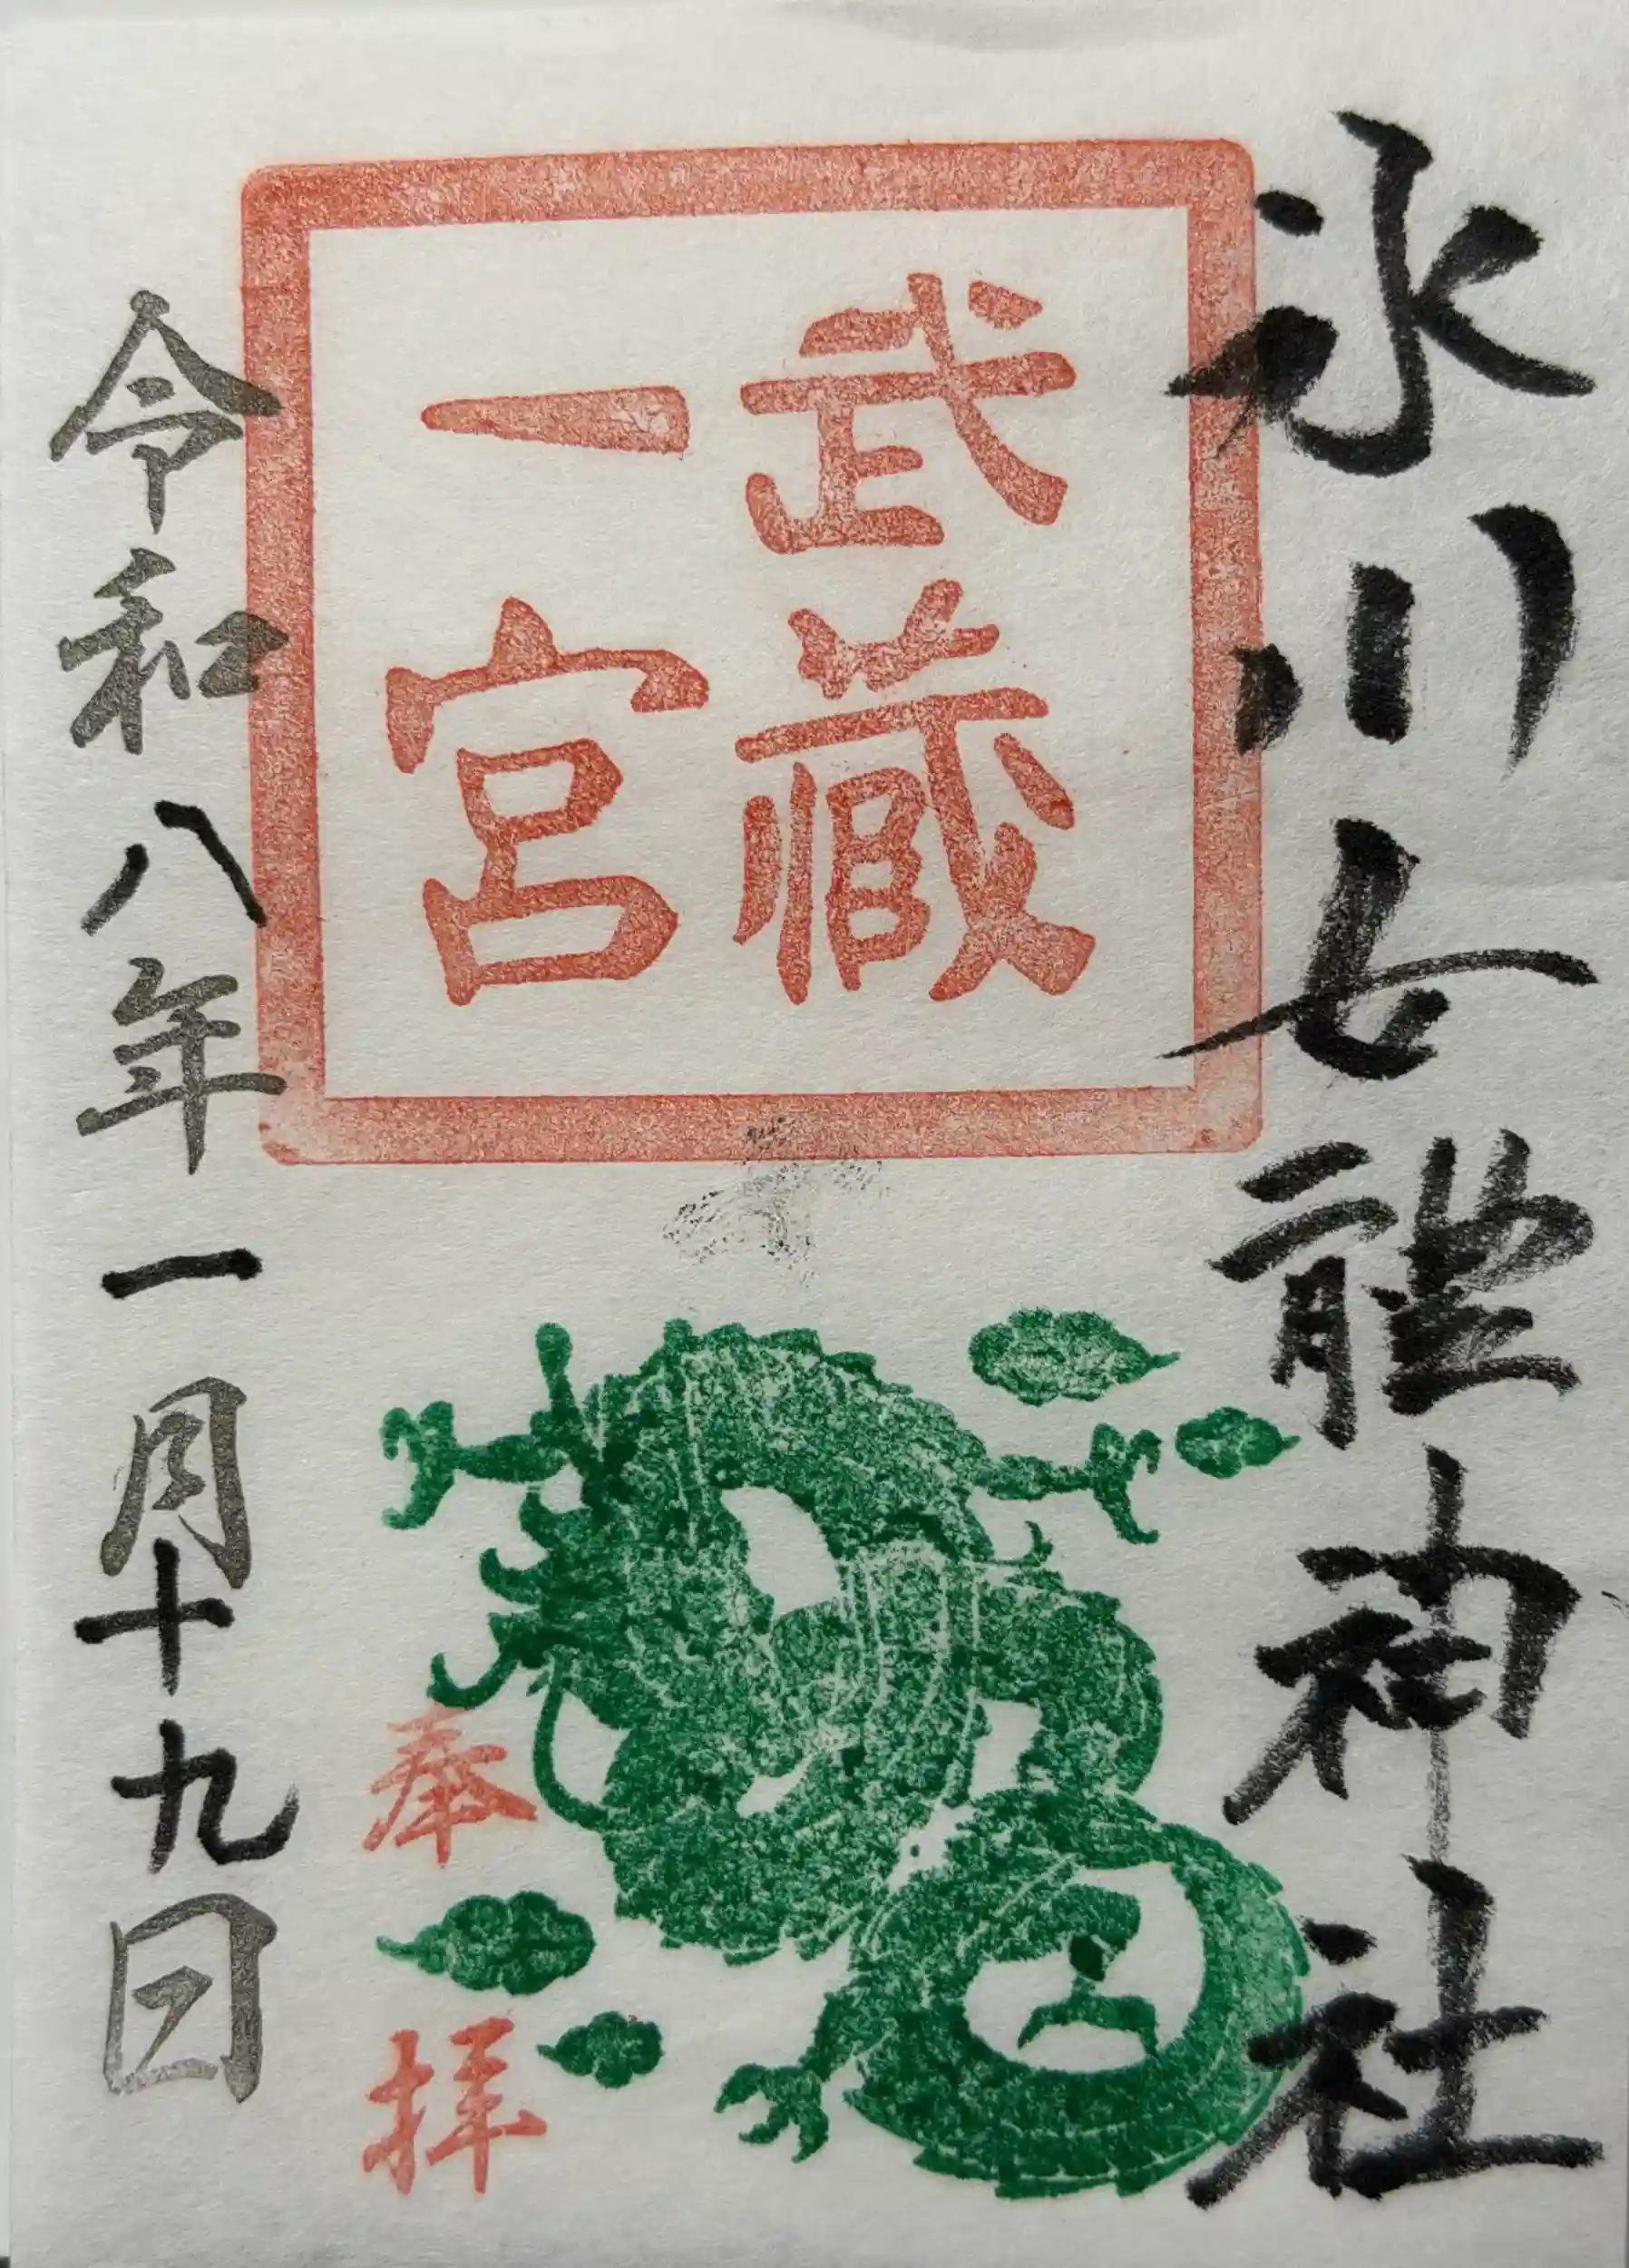 氷川女體神社
武藏
一宮
奉拝
令和八年一月十九日